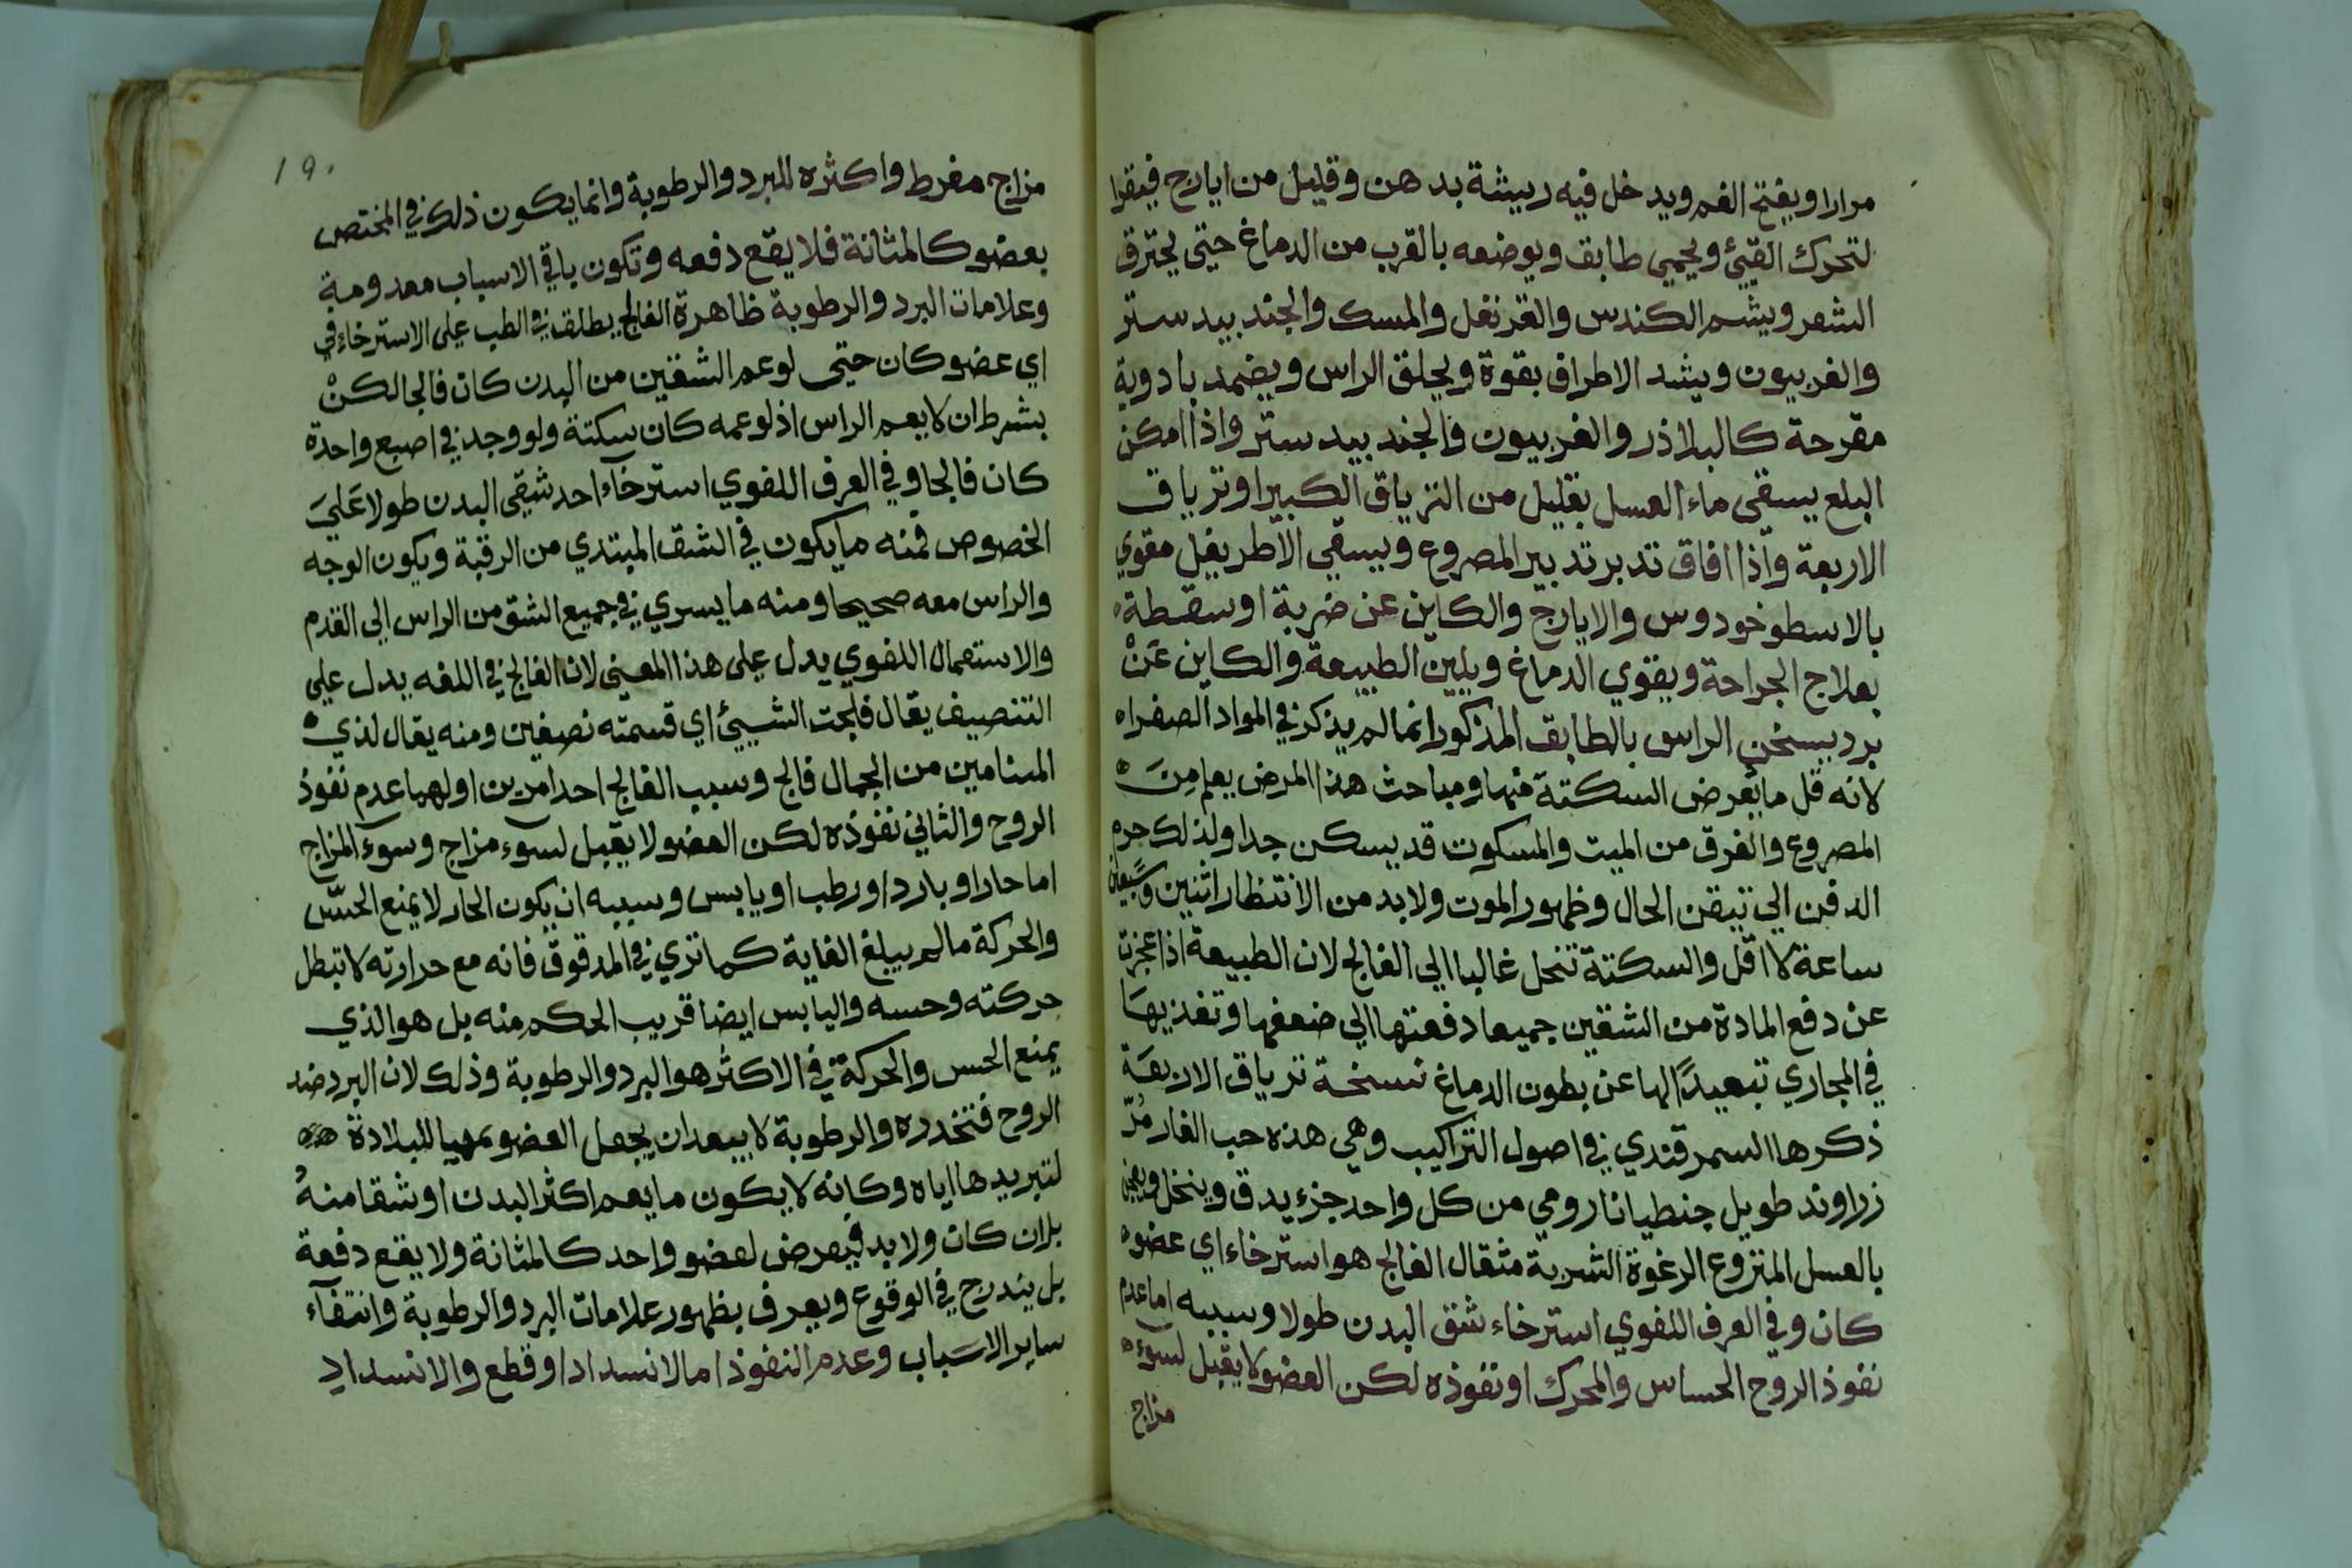 مرارا ويفتح الفم ويدخل فيه ريشة بدهن وقليل من ايارج فيقرا
لتحرك القيئ ويحمي طابق ويوضعه بالقرب من الدماغ حتي يحترق
الشعر ويشم الكندس والقرنفل والمسك والجند بيدستر
والفربيون ويشد الاطراف بقوة ويحلق الراس ويضمد بادوية
مقرحة كالبلاذر والفربيون والجند بيدستر واذا امكن
البلع يسقي ماء العسل بقليل من الترياق الكبير او ترياق
الاربعة واذا افاق تدبر تدبير المصروع ويسقي الاطريفل مقوي
بالاسطوخودوس والايارج والكاين عن ضربة او سقطة
بعلاج الجراحة ويقوي الدماغ ويلين الطبيعة والكاين عن
برد بيسخن الراس بالطابق المذكور انما لم يذكر في المواد الصفراه
لانه قل ما يعرض السكتة منها ومباحث هذا المرض يعلم من
المصروع والفرق من الميت والمسكوت قد يسكن جدا ولذلك حرم
الدفن الي تيقن الحال وظهور الموت ولابد من الانتظار اثنين وسبعين
ساعة لا اقل والسكتة تنحل غالبا الي الفالج لان الطبيعة اذا عجزت
عن دفع المادة من الشقين جميعا دفعتها الي ضعفها وتغذيها
في المجاري تبعيدًا لها عن بطون الدماغ نسخة ترياق الاربعة
ذكرها السمرقندي في اصول التراكيب وهي هذه حب الغار مُرّ
زراوند طويل جنطيانا رومي من كل واحد جزء يدق وينخل ويعجن
بالعسل المنزوع الرغوة الشربة مثقال الفالج هو استرخاء اي عضو
كان وفي العرف اللغوي استرخاء شق البدن طولا وسببه اما عدم
نفوذ الروح الحساس والمحرك او نفوذه لكن العضو لا يقبل لسوء
مزاج
١٩٠
مزاج مفرط واكثره للبرد والرطوبة وانما يكون ذلك في المختص
بعضو كالمثانة فلا يقع دفعه وتكون باقي الاسباب معدومة
وعلامات البرد والرطوبة ظاهرة الفالج يطلق في الطب علي الاسترخاء في
اي عضو كان حتي لو عم الشقين من البدن كان فالجا لكن
بشرط ان لا يعم الراس اذ لو عمه كان سكتة ولو وجد في اصبع واحدة
كان فالجا وفي العرف اللغوي استرخآء احد شقي البدن طولا عَليَ
الخصوص فمنه ما يكون في الشق المبتدي من الرقبة ويكون الوجه
والراس معه صحيحا ومنه ما يسري في جميع الشق من الراس الي القدم
والاستعمال اللغوي يدل علي هذا المعني لان الفالج في اللغه يدل علي
التنصيف يقال فلجت الشيئ اي قسمته نصفين ومنه يقال لذي
السنامين من الجمال فالج وسبب الفالج احد امرين اولهما عدم نفوذ
الروح والثاني نفوذه لكن العضو لا يقبل لسوء مزاج وسوء المزاج
اما حار او بارد او رطب او يابس وسببه ان يكون الحار لا يمنع الحسّ
والحركة ما لم يبلغ الغاية كما تري في المدقوق فانه مع حرارته لا تبطل
حركته وحسه واليابس ايضا قريب الحكم منه بل هو الذي
يمنع الحس والحركة في الاكثر هو البرد والرطوبة وذلك لان البرد ضد
الروح فتخدره والرطوبة لا يبعد ان يجعل العضو مهيا للبلادة
لتبريدها اياه وكانه لا يكون ما يعم اكثر البدن او شقا منهُ
بل ان كان ولابد فيعرض لعضو واحد كالمثانة ولا يقع دفعة
بل يندرج في الوقوع ويعرف بظهور علامات البرد والرطوبة وانتفآء
ساير الاسباب وعدم النفوذ اما لانسداد او قطع والانسدادِ